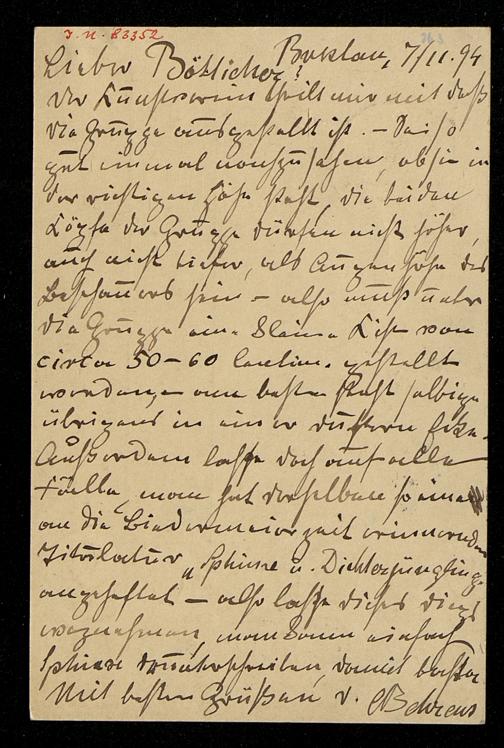 J. N. 83352
Breslau, 7/11. 94
Lieber Bötticher!
der Kunstverein theilt mir mit daß
die Gruppe ausgestellt ist. – Sei so
gut einmal nachzusehen, ob sie in
der richtigen Höhe steht, die beiden
Köpfe der Gruppe dürfen nicht höher,
auch nicht tiefer, als Augenhöhe des
Beschauers sein – also muß unter
die Gruppe eine kleine Kiste von
circa 50–60 Centim. gestellt
werden, – am besten steht selbige
übrigens in einer düstern Ecke.
Außerdem lasse doch auf alle
Fälle, man hat derselben so eine
an die Biedermeierzeit erinnernde
Titulatur „Sphinx u. Dichterjüngling"
angeheftet – also lasse dieses Dings
wegnehmen, man kann einfach
Sphinx drunterschreiben, damit basta
Mit besten Grüßen d. CBehrens